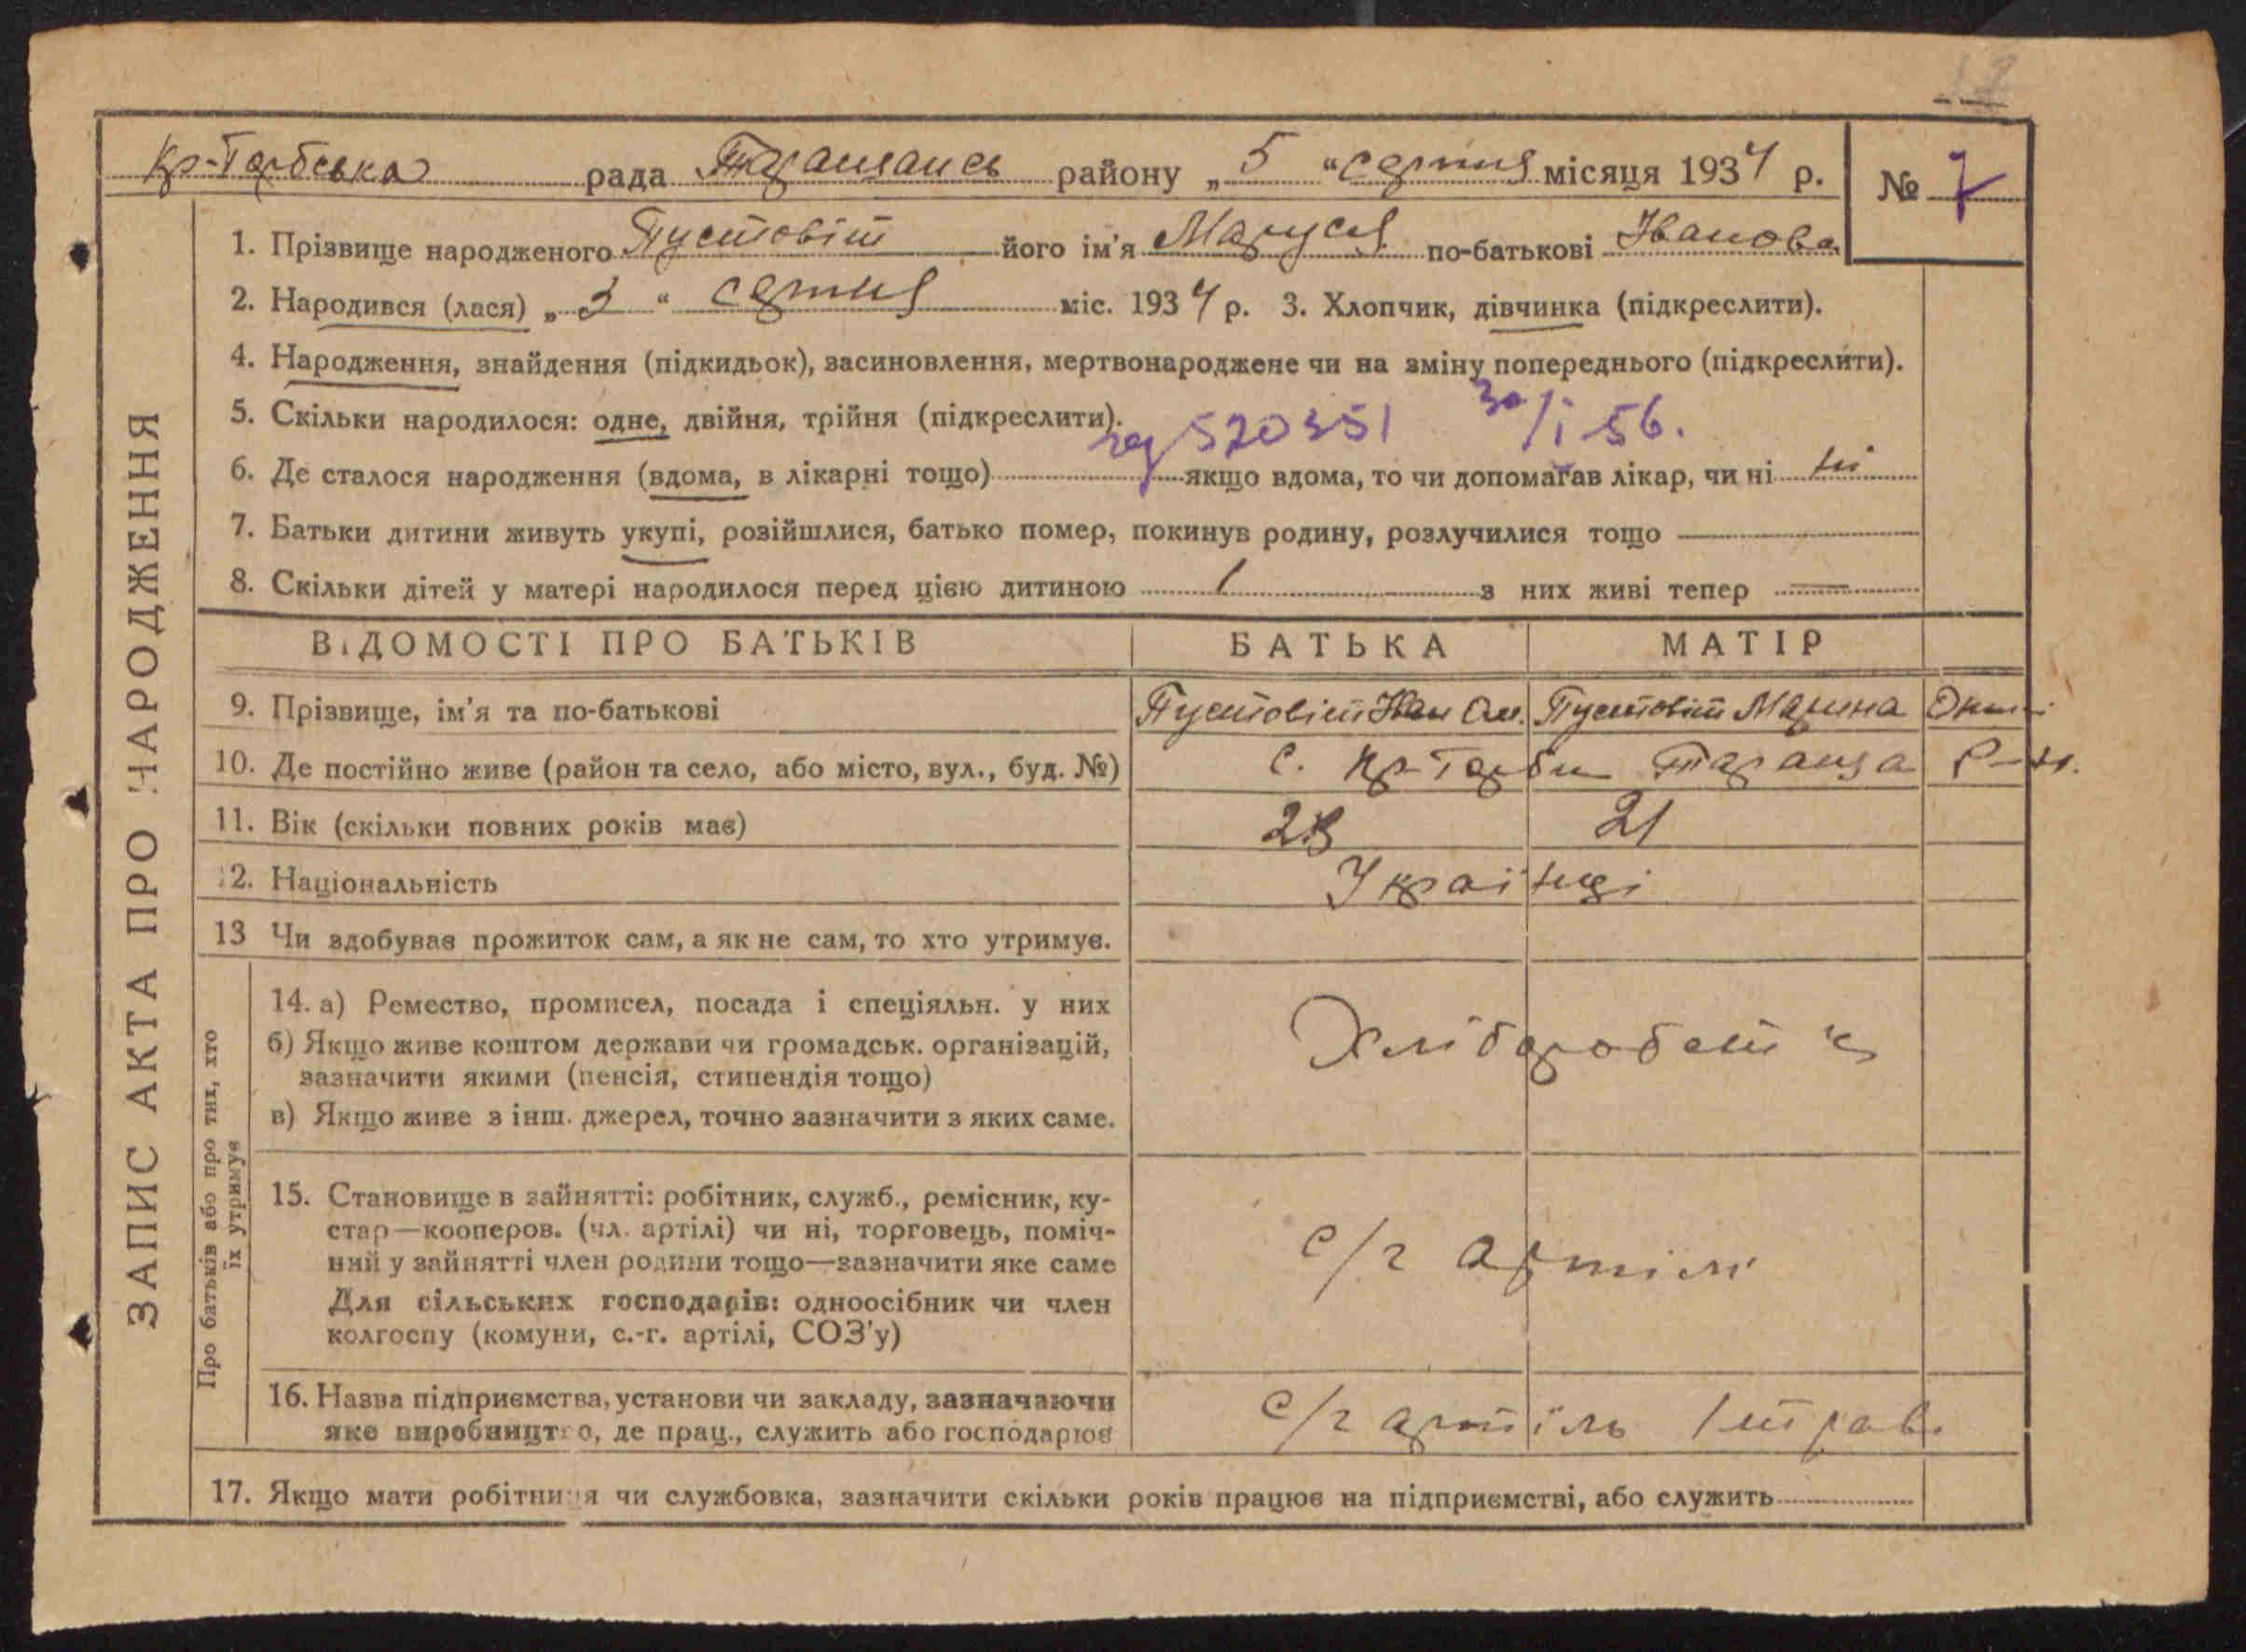 12
Кр-Гарбська рада Таращанськ району „5“ серпня місяця 1934 р. № 7
1. Прізвище народженого Пустовіт його ім'я Маруся по-батькові Іванова
2. Народився (лася) „3“ серпня міс. 1934 р. 3. Хлопчик, дівчинка (підкреслити).
4. Народження, знайдення (підкидьок), засиновлення, мертвонароджене чи на зміну попереднього (підкреслити).
5. Скільки народилося: одне, двійня, трійня (підкреслити).
520351 30/I 56.
6. Де сталося народження (вдома, в лікарні тощо) якщо вдома, то чи допомагав лікар, чи ні ні
7. Батьки дитини живуть укупі, розійшлися, батько помер, покинув родину, розлучилися тощо
8. Скільки дітей у матері народилося перед цією дитиною 1 з них живі тепер —
ВІДОМОСТІ ПРО БАТЬКІВ БАТЬКА МАТІР
9. Прізвище, ім'я та по-батькові Пустовіт Іван Пустовіт Марина
10. Де постійно живе (район та село, або місто, вул., буд. №) с. Кр-Гарби Тараща р-н.
11. Вік (скільки повних років має) 23 21
12. Національність Українці
13 Чи здобуває прожиток сам, а як не сам, то хто утримує.
Про батьків або про тих, хто їх утримує
14. а) Ремество, промисел, посада і спеціяльн. у них
б) Якщо живе коштом держави чи громадськ. організацій,
зазначити якими (пенсія, стипендія тощо)
в) Якщо живе з інш. джерел, точно зазначити з яких саме.
Хлібороб
15. Становище в зайнятті: робітник, служб., ремісник, ку-
стар—кооперов. (чл. артілі) чи ні, торговець, поміч-
ний у зайнятті член родини тощо—зазначити яке саме
Для сільських господарів: одноосібник чи член
колгоспу (комуни, с.-г. артілі, СОЗ'у)
с/г артілі
16. Назва підприємства, установи чи закладу, зазначаючи
яке виробництво, де прац., служить або господарює
с/г артіль 1 трав.
17. Якщо мати робітниця чи службовка, зазначити скільки років працює на підприємстві, або служить
ЗАПИС АКТА ПРО НАРОДЖЕННЯ